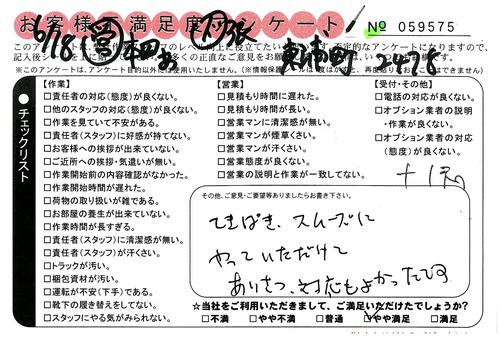 お客様満足度アンケート
№ 059575
6/18
2478
※このアンケートは、アンケート目的以外には使用いたしません。
チェックリスト
【作業】
□責任者の対応(態度)が良くない。
□他のスタッフの対応(態度)が良くない。
□作業を見ていて不安がある。
□責任者(スタッフ)に好感が持てない。
□お客様への挨拶が出来ていない。
□ご近所への挨拶・気遣いが無い。
□作業開始前の内容確認がなかった。
□作業開始時間が遅れた。
□荷物の取り扱いが雑である。
□お部屋の養生が出来ていない。
□作業時間が長すぎる。
□責任者(スタッフ)に清潔感が無い。
□責任者(スタッフ)が汗くさい。
□トラックが汚い。
□梱包資材が汚い。
□運転が不安(下手)である。
□靴下の履き替えをしてない。
□スタッフにやる気がみられない。
【営業】
□見積もり時間に遅れた。
□見積もり時間が長い。
□営業マンに清潔感が無い。
□営業マンが煙草くさい。
□営業マンが汗くさい。
□営業態度が良くない。
□営業の説明と作業が一致してない。
【受付・その他】
□電話の対応が良くない。
□オプション業者の説明
・作業が良くない。
□オプション業者の対応
(態度)が良くない。
その他、ご意見・ご要望等ありましたらお書き下さい。
てきぱき、スムーズに
やっていただけて
あいさつ、対応もよかったです
☆当社をご利用いただきまして、ご満足いただけたでしょうか?
□不満 □やや不満 □普通 □やや満足 □満足